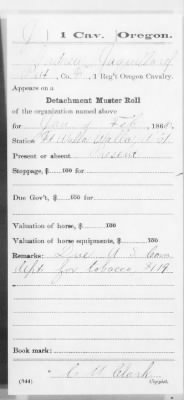 1 Cav. Oregon.
Pvt, Co. , 1 Reg't Oregon Cavalry.
Appears on a
Detachment Muster Roll
of the organization named above
for Jan y Feb, 186
Station Ft Walla Walla W. T.
Present or absent Present
Stoppage, $ 100 for
Due Gov't, $ 100 for
Valuation of horse, $ 100
Valuation of horse equipments, $ 100
Remarks: Due U S Com
dept for tobacco $1.19
Book mark:
C W Clark
(344) Copyist.